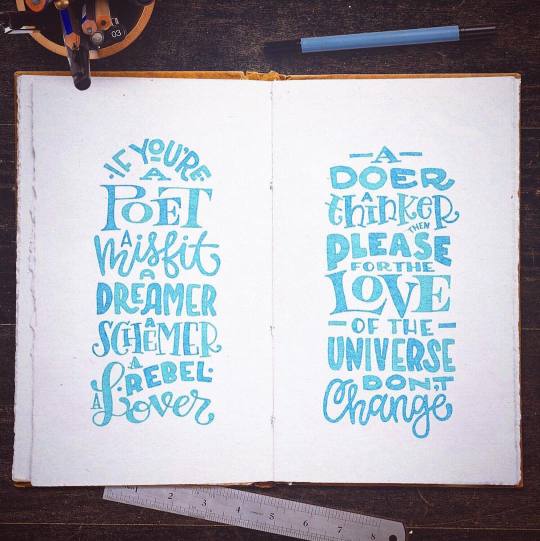 ·IF YOU'RE
A
POET
A
misfit
A
DREAMER
A
SCHEMER
A
·REBEL·
A Lover
— A —
DOER
A
thinker
THEN
PLEASE
FOR THE
LOVE
— OF THE —
UNIVERSE
DON'T
Change
03
1 2 3 4 5 6 7 8